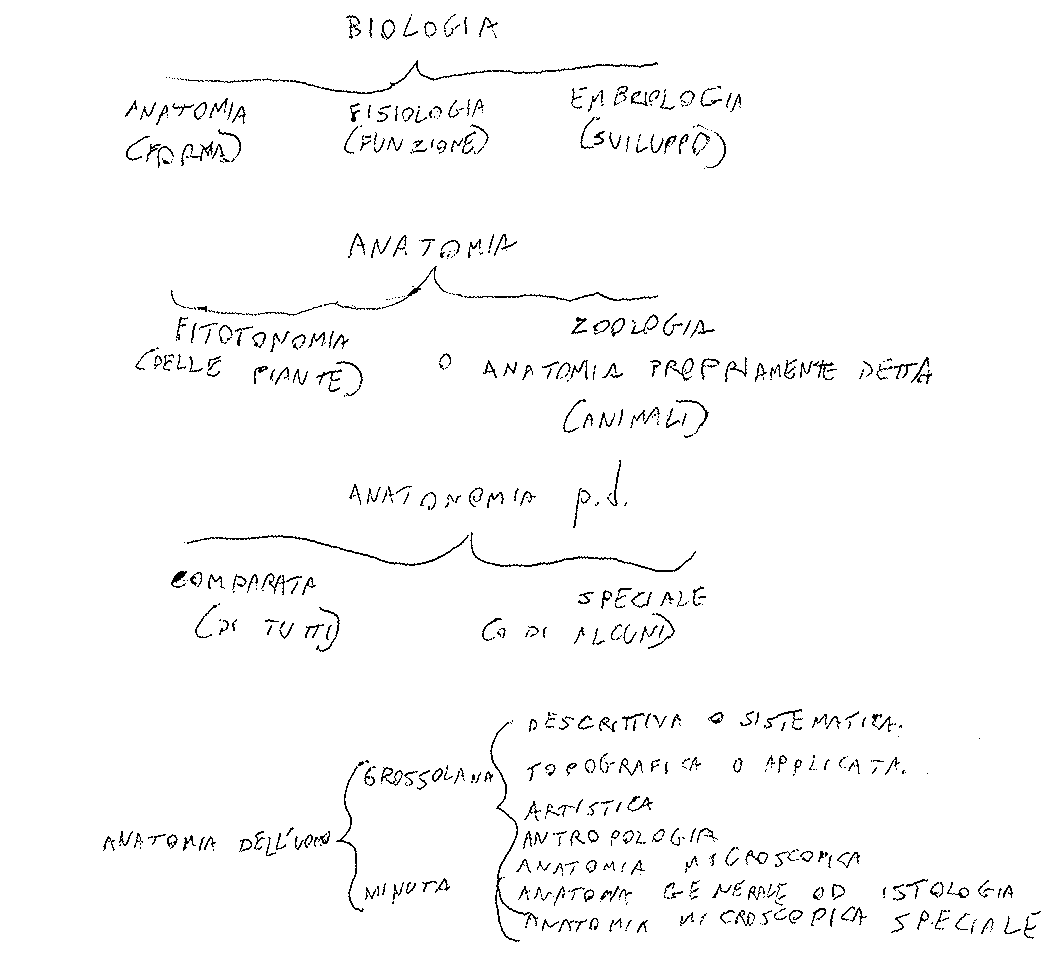 BIOLOGIA
ANATOMIA FISIOLOGIA EMBRIOLOGIA
(FORMA) (FUNZIONE) (SVILUPPO)
ANATOMIA
FITOTONOMIA ZOOLOGIA
(DELLE PIANTE) O ANATOMIA PROPRIAMENTE DETTA
(ANIMALI)
ANATONOMIA p.d.
COMPARATA SPECIALE
(DI TUTTI) (O DI ALCUNI)
DESCRITTIVA O SISTEMATICA.
GROSSOLANA TOPOGRAFICA O APPLICATA.
ARTISTICA
ANATOMIA DELL'UOMO ANTROPOLOGIA
ANATOMIA MICROSCOPICA
MINUTA ANATOMA GENERALE OD ISTOLOGIA
ANATOMIA MICROSCOPICA SPECIALE